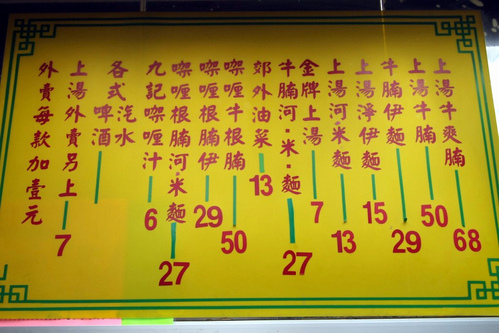 上湯牛爽腩 68
上湯牛腩 50
牛腩伊麵 29
上湯淨伊麵 15
上湯河米麵 13
金牌上湯 7
牛腩河·米·麵 27
郊外油菜 13
㗎喱牛根腩 50
㗎喱根腩伊 29
㗎喱根腩河·米麵 27
九記㗎喱汁 6
各式汽水
啤酒
上湯外賣另上 7
外賣每款加壹元